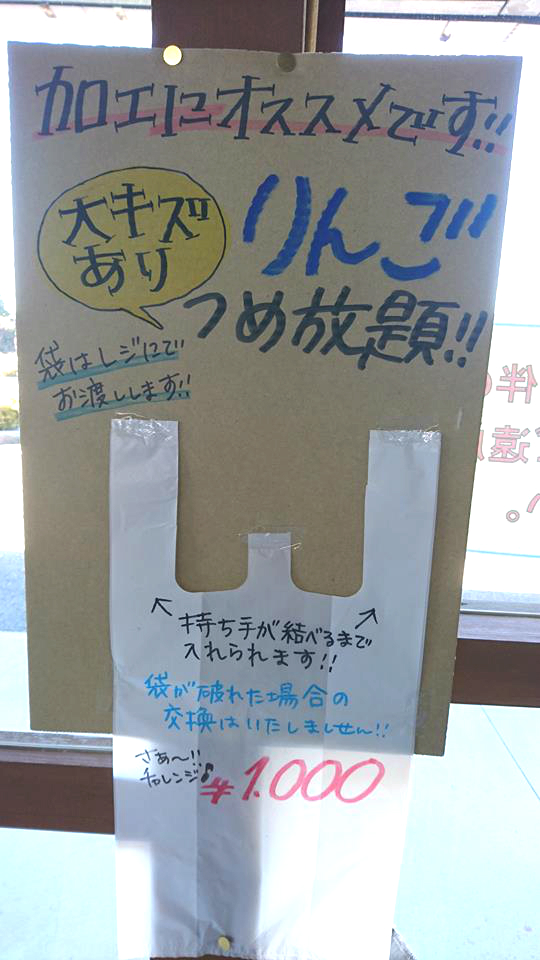 加工にオススメです!!
大キズ
あり
りんご
つめ放題!!
袋はレジにて
お渡しします!!
持ち手が結べるまで
入れられます!!
袋が破れた場合の
交換はいたしません!!
さぁ〜!!
チャレンジ♪
¥1.000
伴
遠
い。